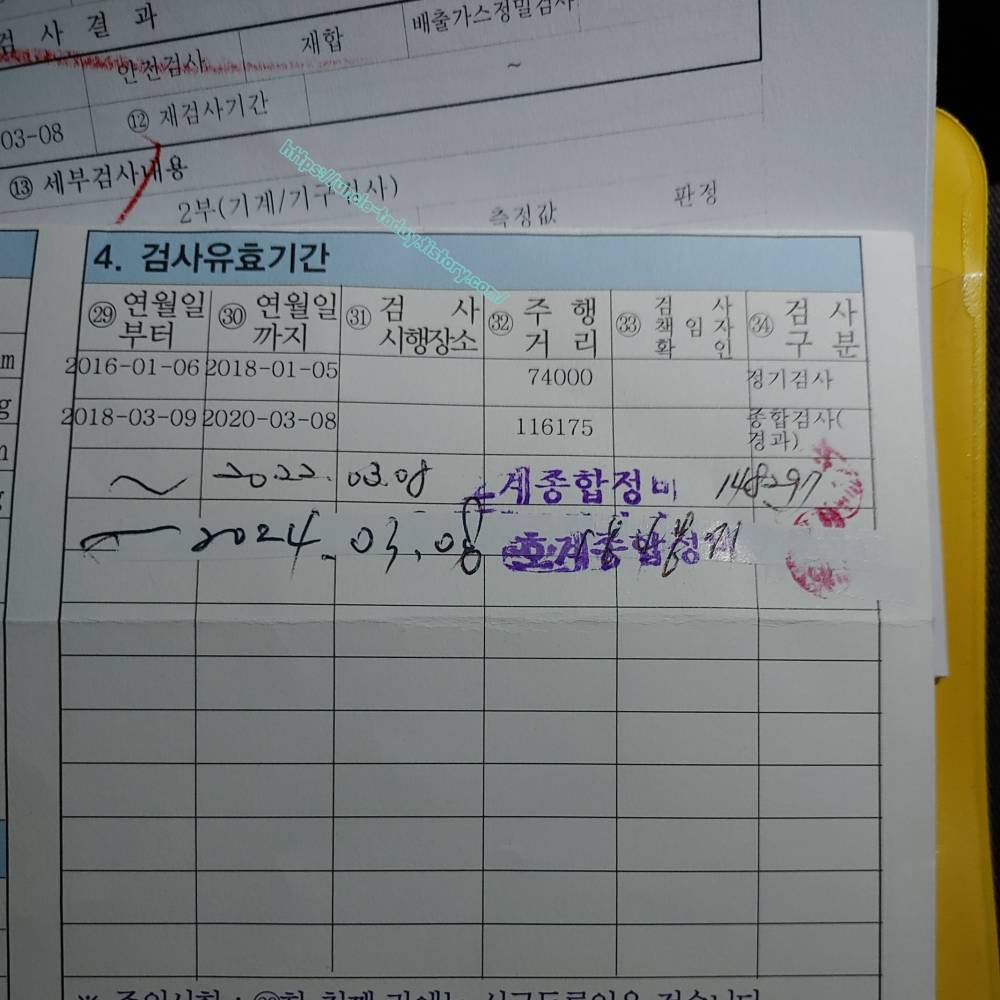 검 사 결 과
안전검사 재합 배출가스정밀검사
~
03-08 ⑫ 재검사기간
⑬ 세부검사내용
https://uncle-today.tistory.com/
2부(기계/기구검사) 측정값 판정
4. 검사유효기간
㉙ 연월일 부터 ㉚ 연월일 까지 ㉛ 검 사 시행장소 ㉜ 주 행 거 리 ㉝ 검 사 책 임 자 확 인 ㉞ 검 사 구 분
2016-01-06 2018-01-05 74000 정기검사
2018-03-09 2020-03-08 116175 종합검사(
경과)
~ 2022. 03.08 계종합정비 148297
~ 2024. 03. 08 호계종합정
m
g
m